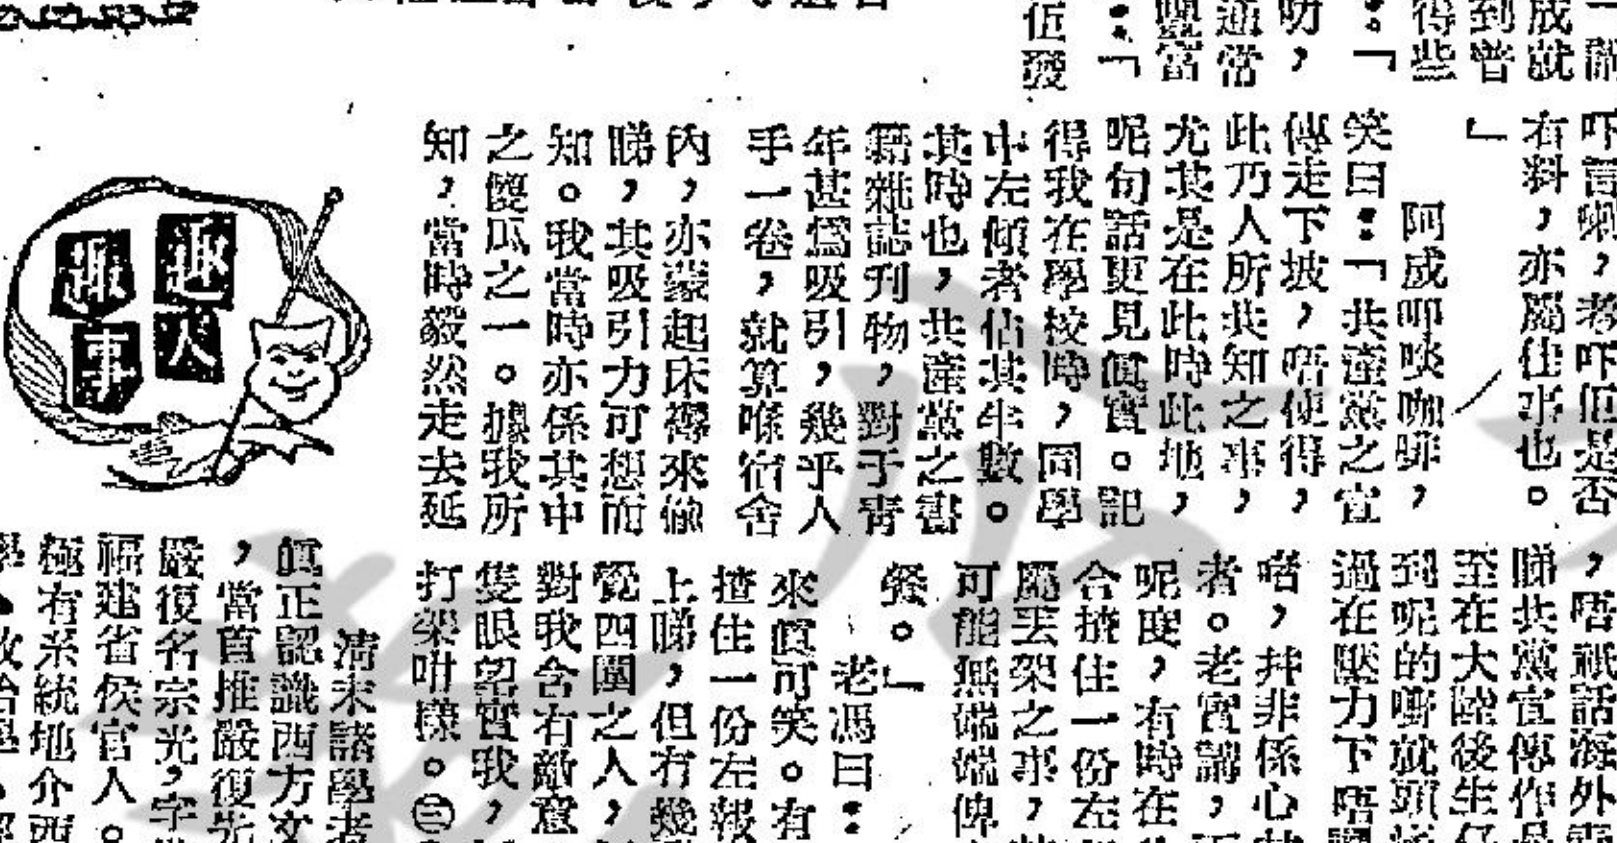 成就
到普
得些
：「
叻，
通常
豐富
：「
伍發
吓言喇，考吓佢是否
有料，亦屬佳事也。
」
阿成呷啖咖啡，
笑曰：「共產黨之宣
傳走下坡，唔使得，
此乃人所共知之事，
尤其是在此時此地，
呢句話更見眞實。記
得我在學校時，同學
中左傾者佔其半數。
其時也，共產黨之書
籍雜誌刊物，對于靑
年甚爲吸引，幾乎人
手一卷，就算喺宿舍
內，亦蒙起床褥來偷
睇，其吸引力可想而
知。我當時亦係其中
之傻瓜之一。據我所
知，當時毅然走去延
趣人
趣事
，唔祇話海外
睇共黨宣傳作
至在大陸後生仔
到呢的嘢就頭
過在壓力下唔
啱，幷非係心
者。老實講，
呢度，有時在
合揸住一份左
屬丟架之事，
可能無端端俾
餐。」
老馮曰：
來眞可笑。有
揸住一份左報
上睇，但冇幾
覺四圍之人，
對我含有敵意
隻眼望實我，
打架咁樣。㊂
淸末諸學者
眞正認識西方文
，當首推嚴復先
嚴復名宗光，字
福建省侯官人。
極有系統地介西